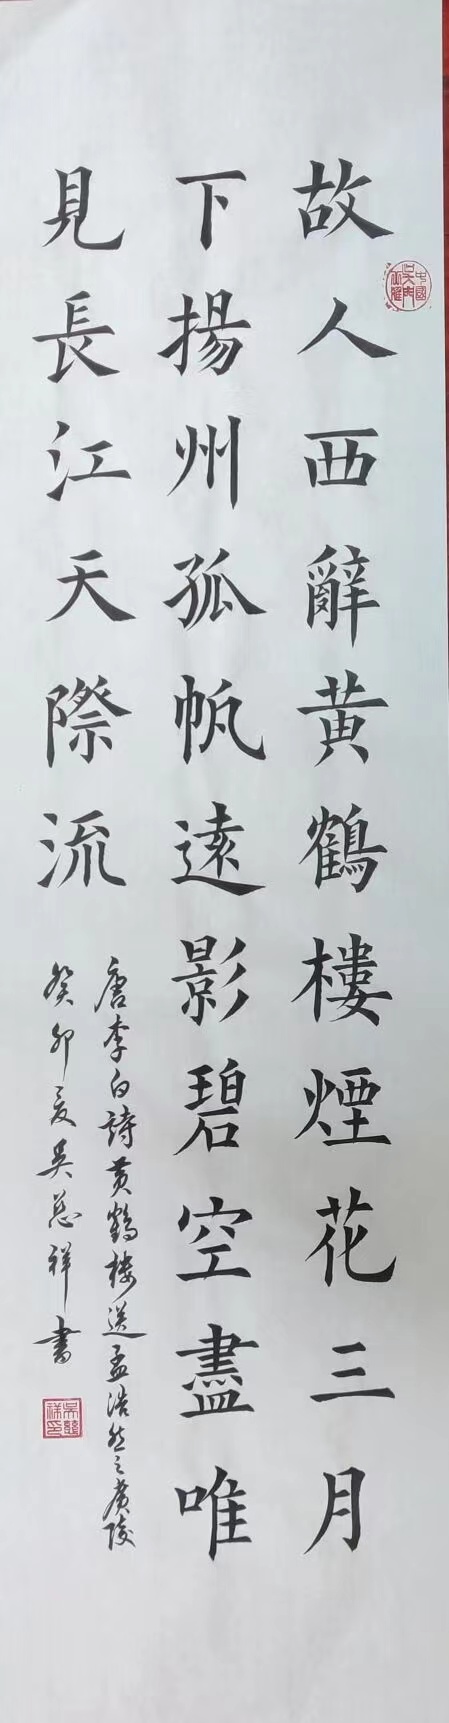 故人西辭黄鶴樓煙花三月
下揚州孤帆遠影碧空盡唯
見長江天際流
唐李白詩黄鶴樓送孟浩然之廣陵
癸卯夏吴慈祥書